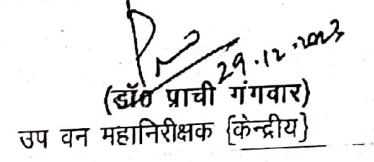 29.12.2023
(डॉ0 प्राची गंगवार)
उप वन महानिरीक्षक {केन्द्रीय}